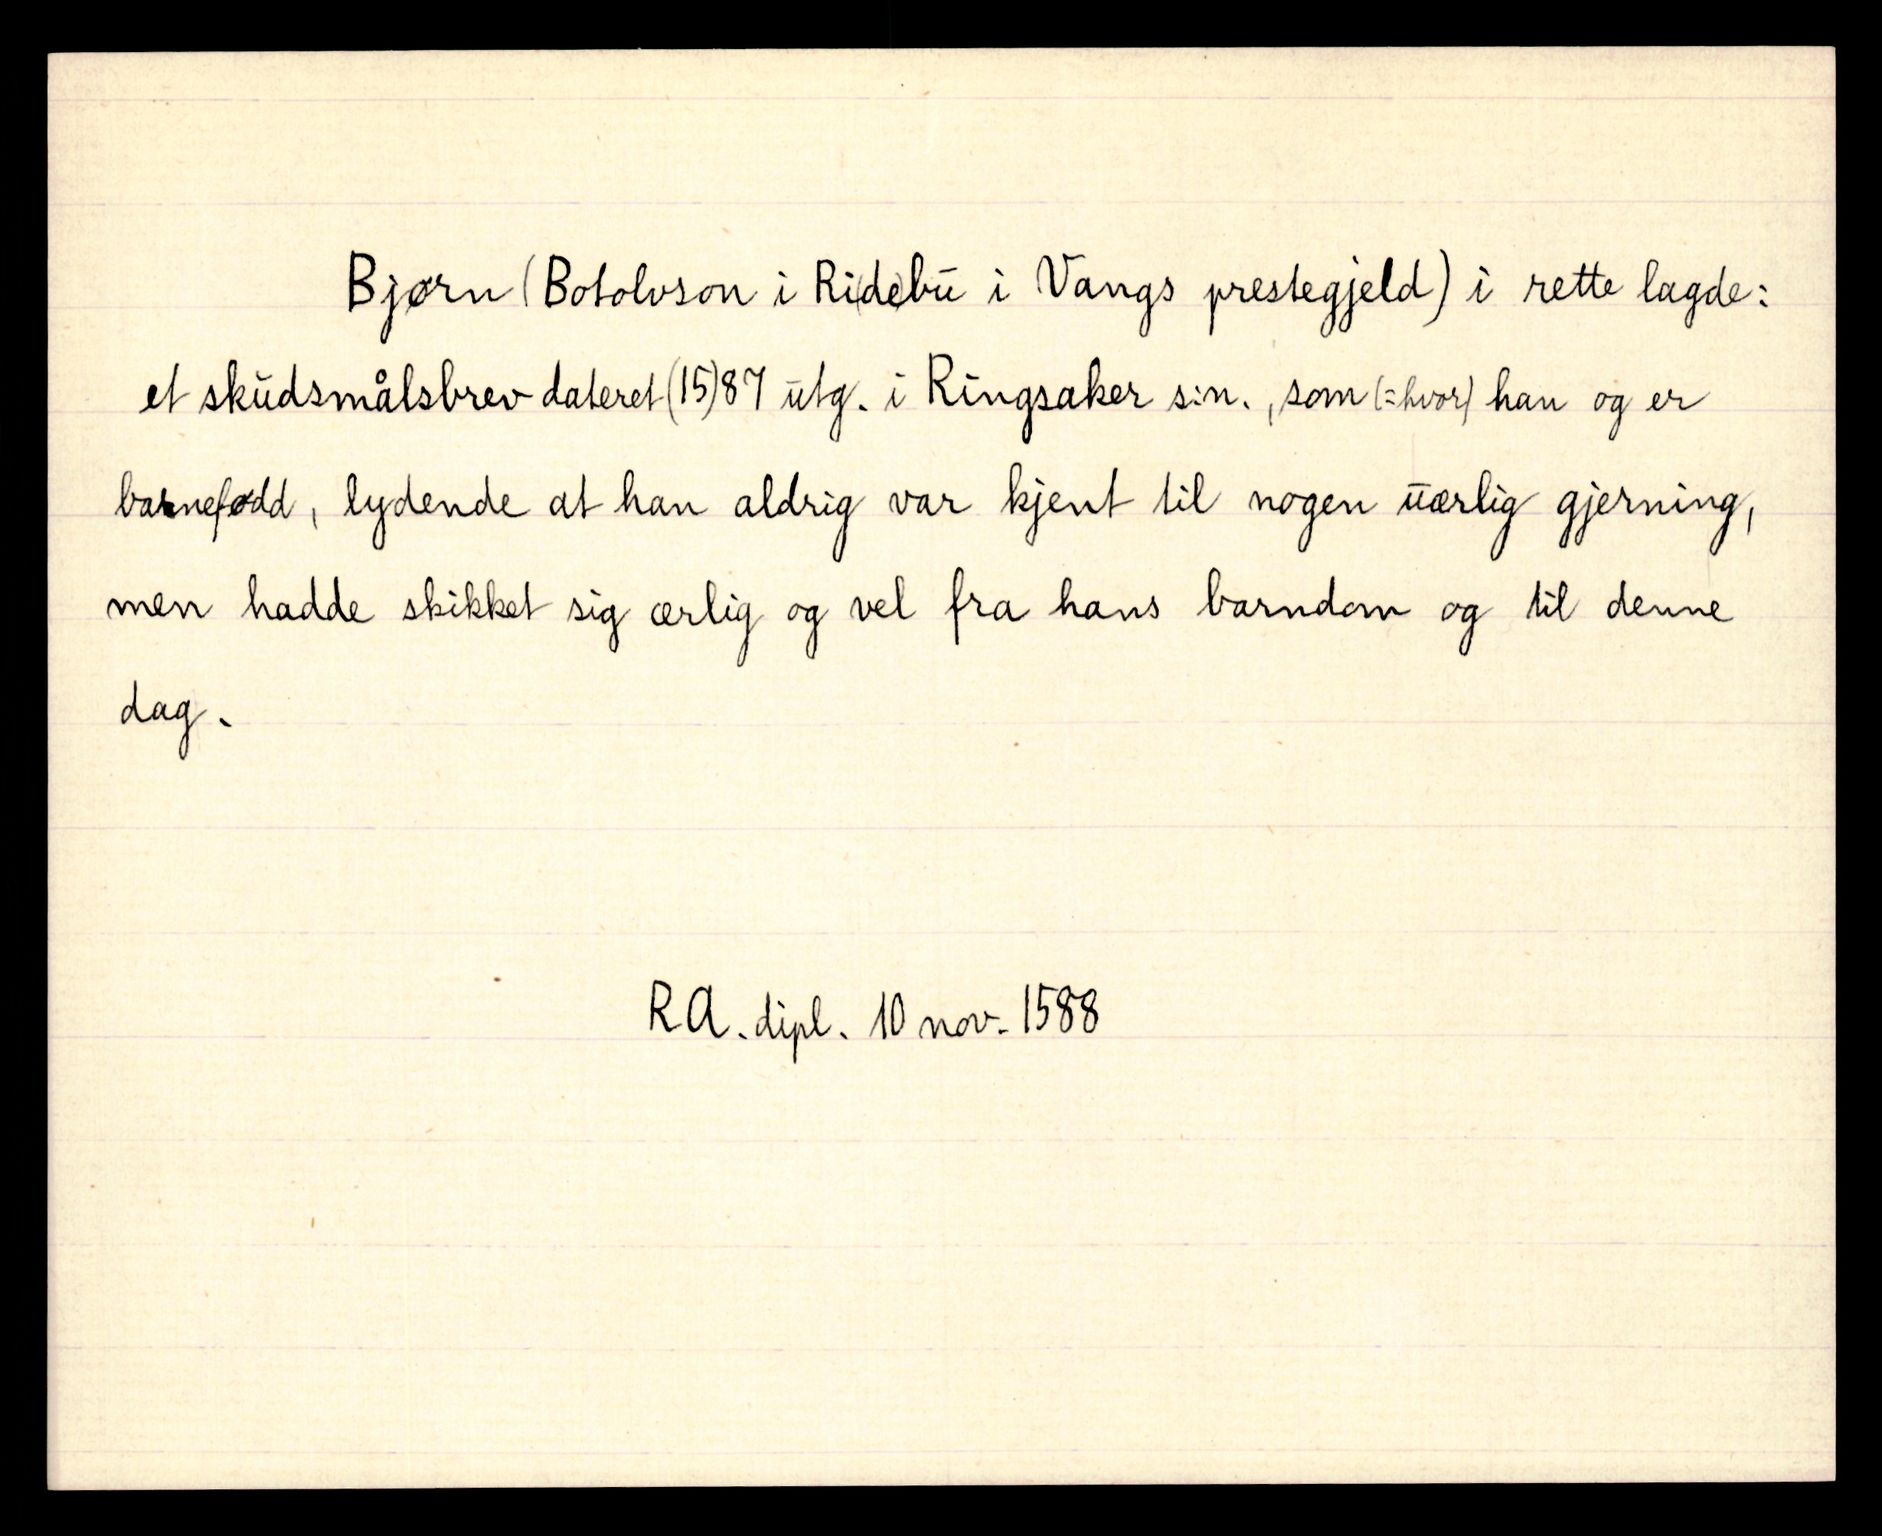 Bjørn (Botolvson i Ri(de)bu i Vangs prestegjeld) i rette lagde:
et skudsmålsbrev dateret (15)87 utg. i Ringsaker s:n., som (=hvor) han og er
barnefødd, lydende at han aldrig var kjent til nogen uærlig gjerning,
men hadde skikket sig ærlig og vel fra hans barndom og til denne
dag.
RA. dipl. 10 nov. 1588